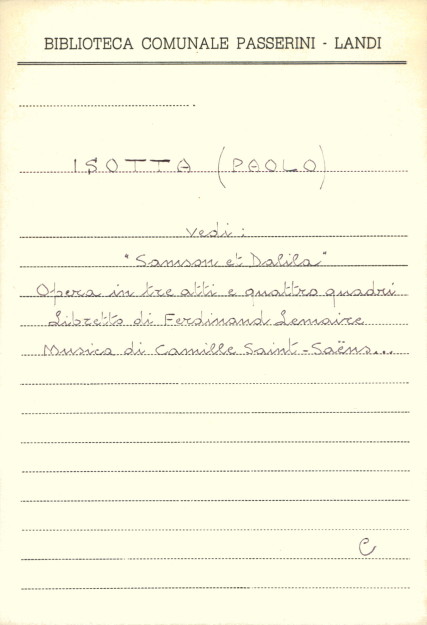 BIBLIOTECA COMUNALE PASSERINI - LANDI
ISOTTA (PAOLO)
Vedi:
"Samson et Dalila"
Opera in tre atti e quattro quadri
Libretto di Ferdinand Lemaire
Musica di Camille Saint-Saëns...
C